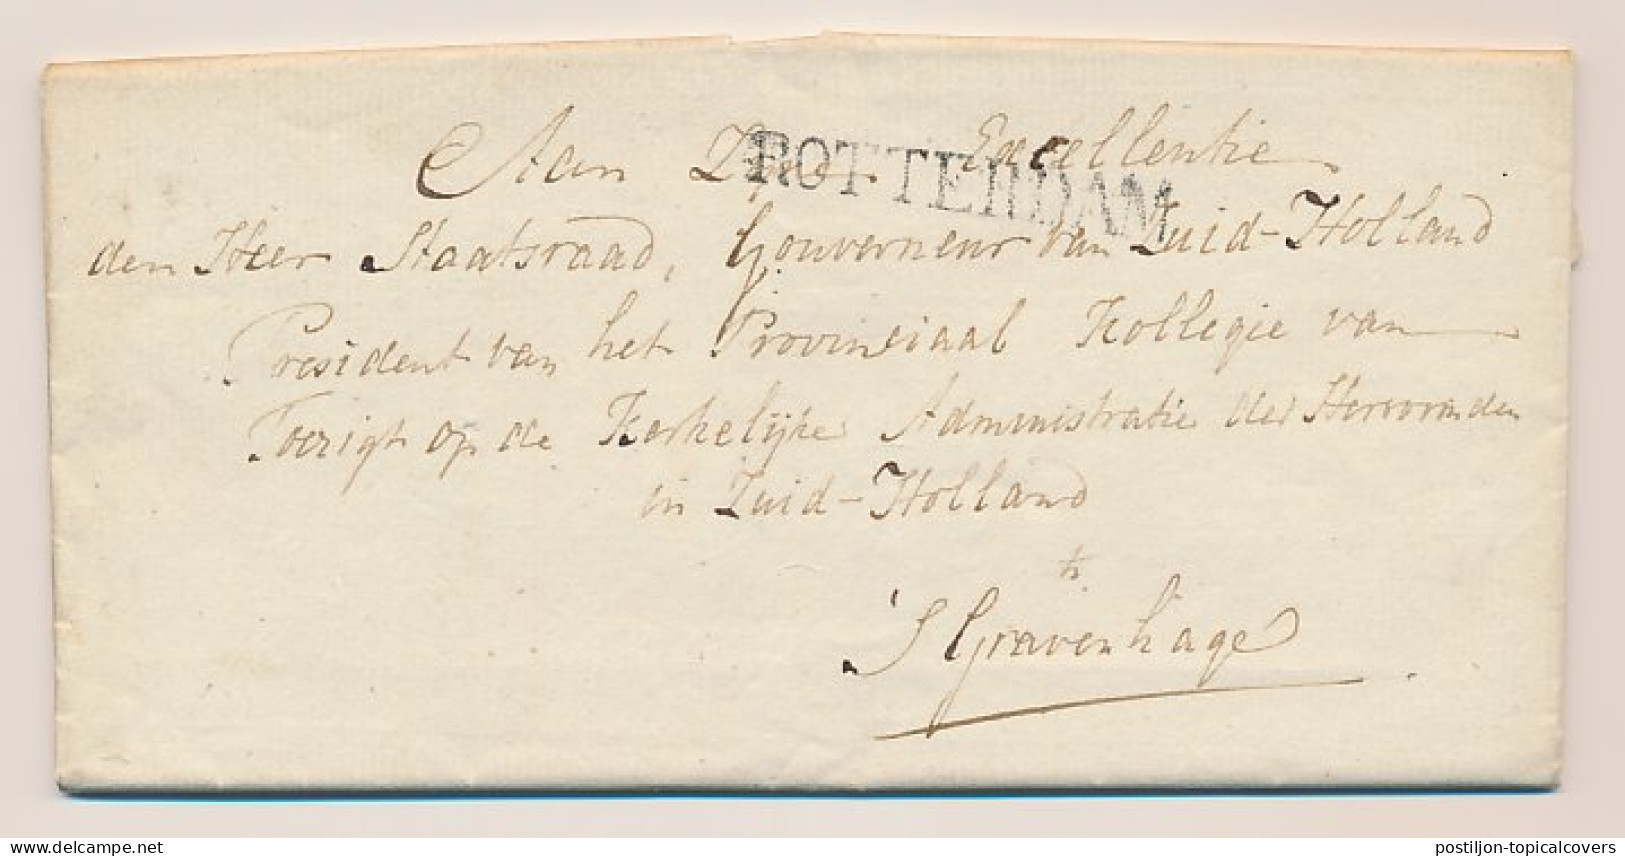 Aan Zyne Excellentie
ROTTERDAM
den Heer Staatsraad, Gouverneur van Zuid-Holland
President van het Provinciaal Kollegie van
Toezigt op de Kerkelijke Administratie der Hervormden
in Zuid-Holland
te
'S Gravenhage
www.delcampe.net
postiljon-topicalcovers